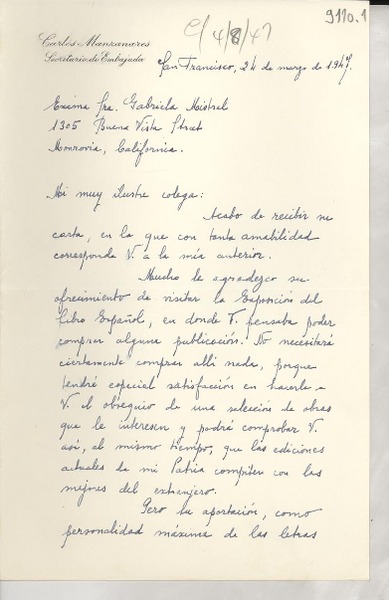 9110.1
C/ 4/8/47
Carlos Manzanares
Secretario de Embajada
San Francisco, 24 de marzo de 1947.
Excma Sra. Gabriela Mistral
1305 Buena Vista Street
Monrovia, California.
Mi muy ilustre colega:
Acabo de recibir su
carta, en la que con tanta amabilidad
corresponde V. a la mía anterior.
Mucho le agradezco su
ofrecimiento de visitar la Exposición del
Libro Español, en donde V. pensaba poder
comprar alguna publicación. No necesitará
ciertamente comprar allí nada, porque
tendré especial satisfacción en hacerle a
V. el obsequio de una selección de obras
que le interesen y podrá comprobar V.
así, al mismo tiempo, que las ediciones
actuales de mi Patria compiten con las
mejores del extranjero.
Pero su aportación, como
personalidad máxima de las letras